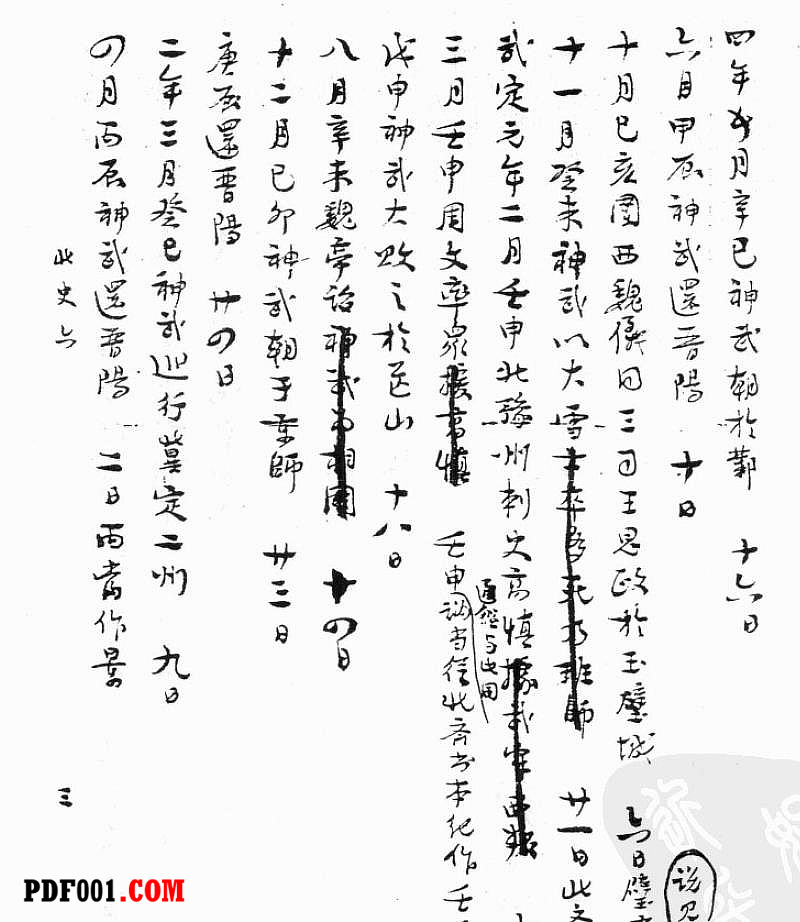 四年五月辛巳神武朝於鄴 十六日
六月甲辰神武還晋陽 十日
十月己亥圍西魏儀同三司王思政於玉壁城 六日壁
十一月癸未神武以大雪士卒多死乃班師 廿一日此文
武定元年二月壬申北豫州刺史高慎據武牢西叛
通鑑与此同
三月壬申周文率衆援高慎 壬申誤当從北齐书本纪作壬
戊申神武大敗之於芒山 十八日
八月辛未魏帝詔神武为相國 十四日
十二月己卯神武朝于京師 廿三日
庚辰還晋陽 廿四日
二年三月癸巳神武巡行冀定二州 九日
四月丙辰神武還晋陽 二日丙当作景
北史六
三
说见
PDF001.COM